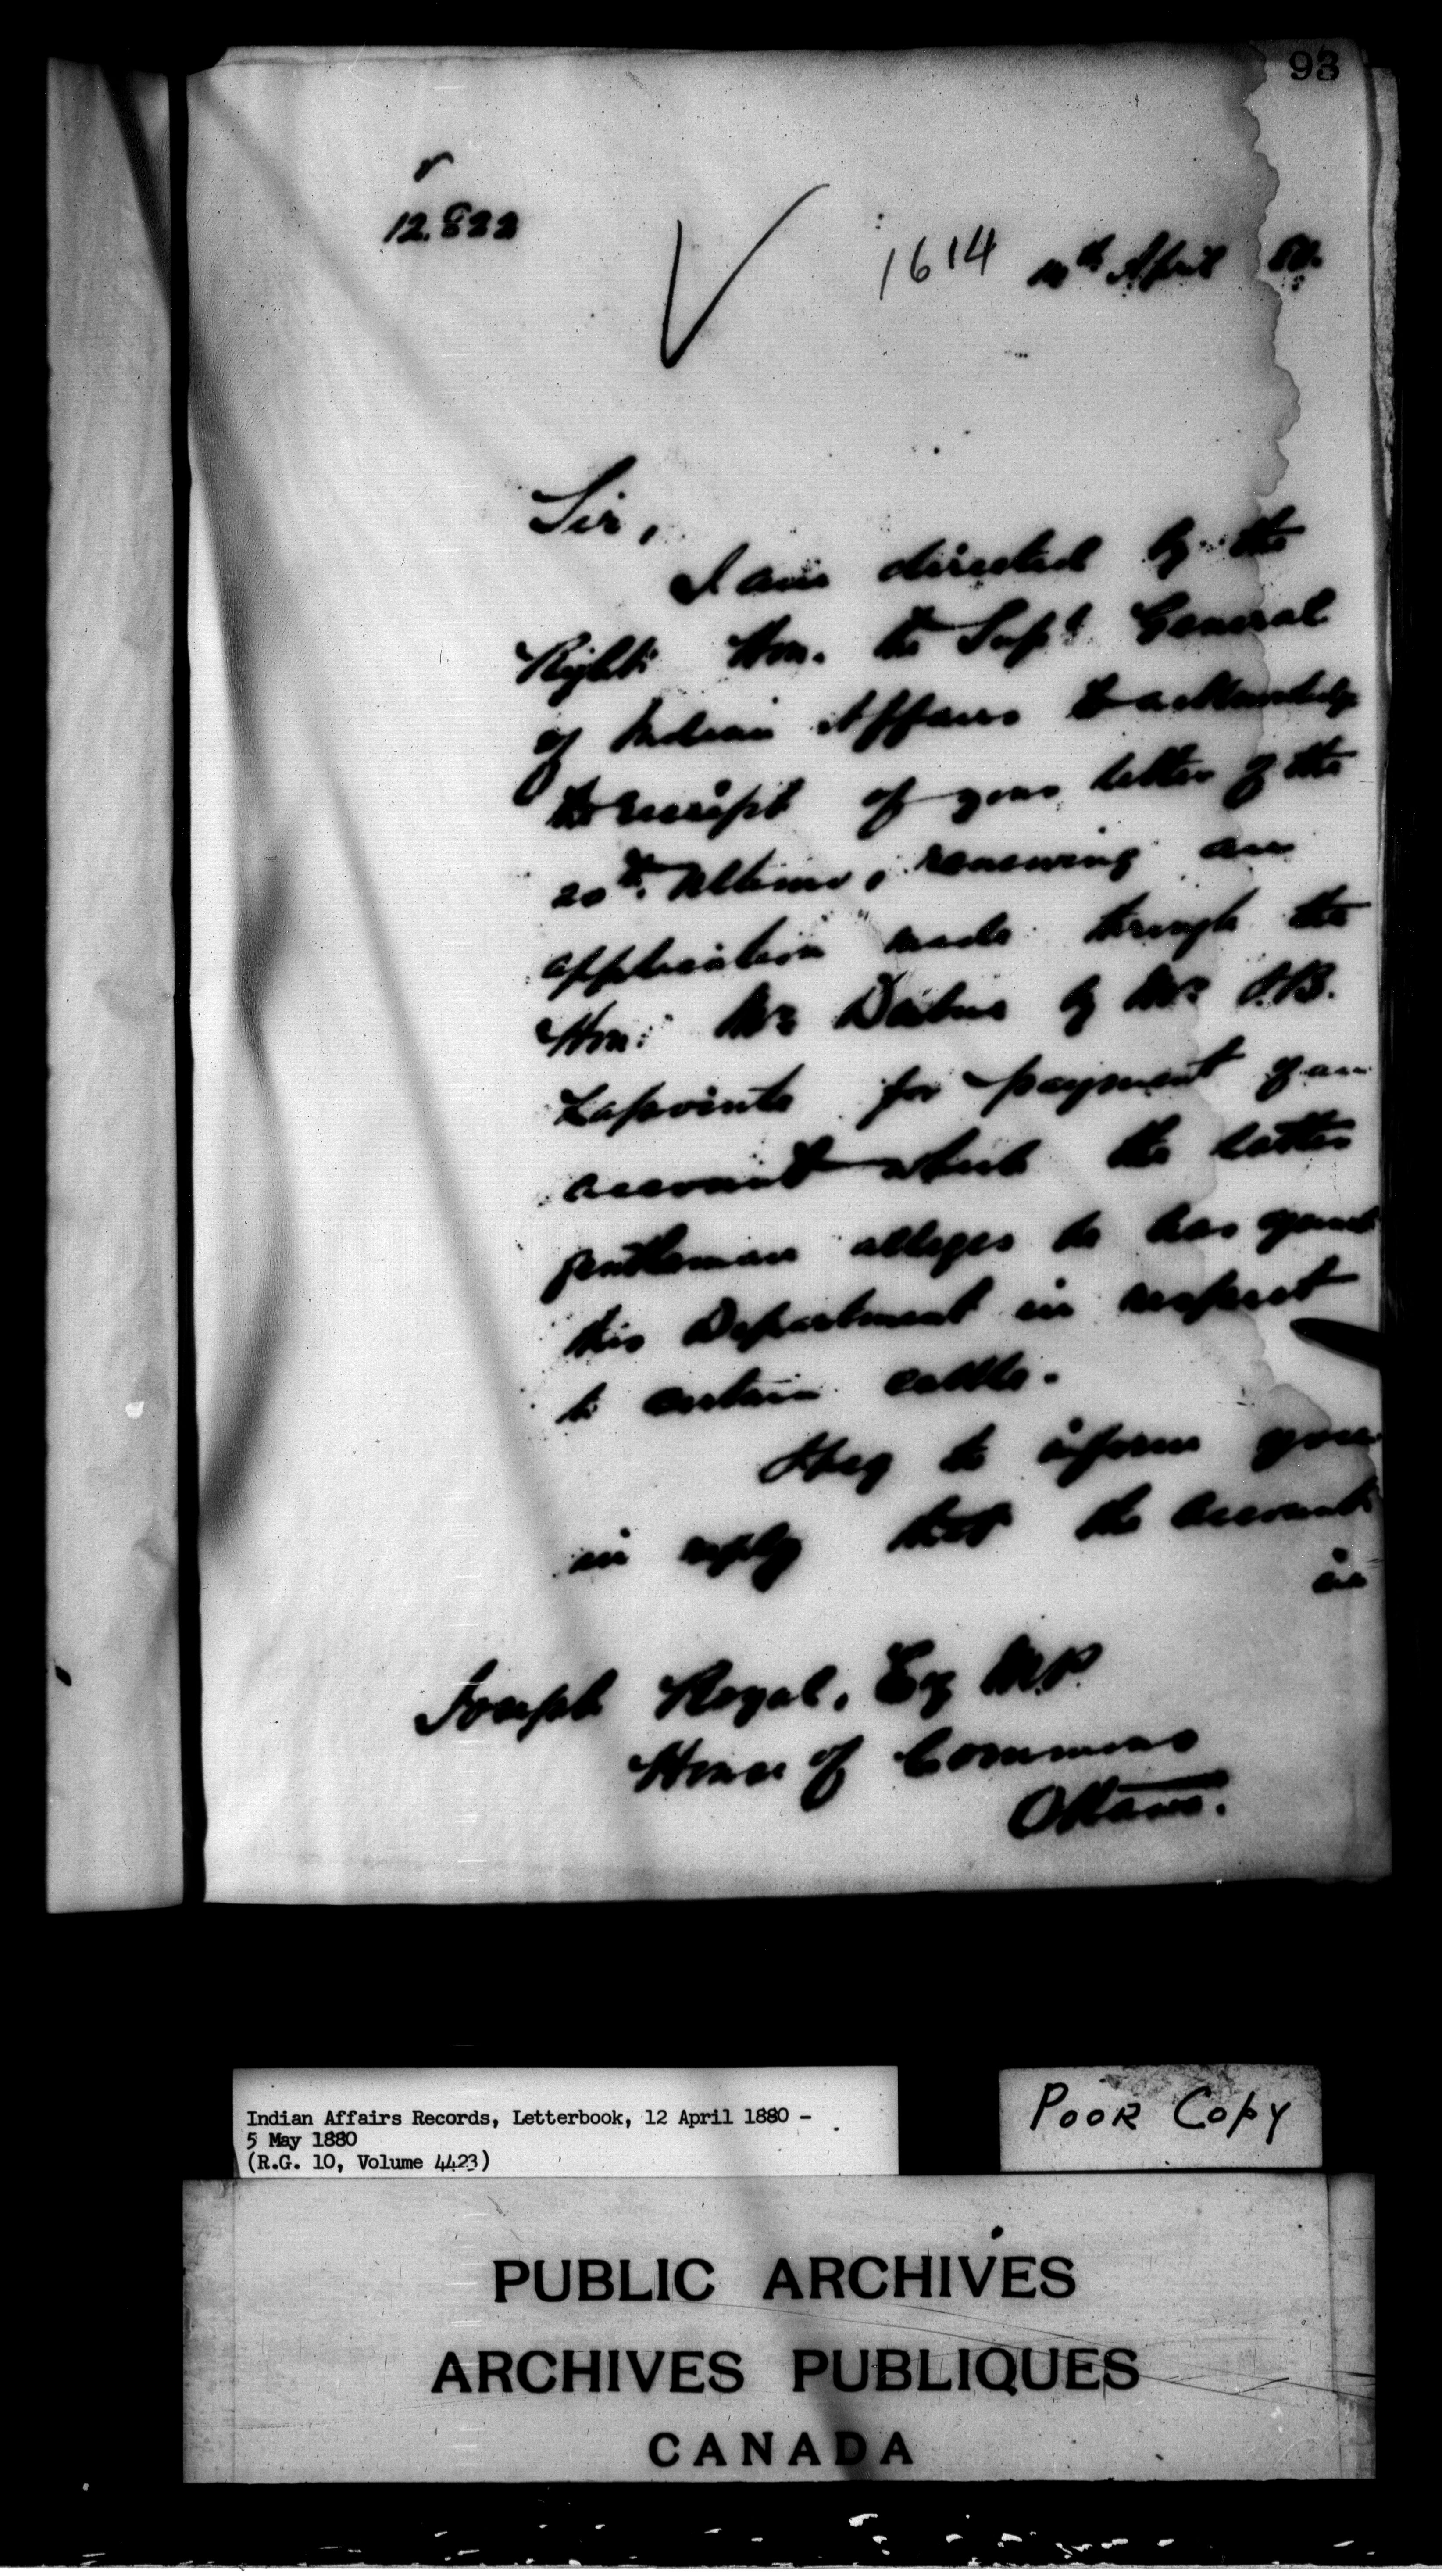 93
12.822
1614 14th April 80.
Sir,
I am directed by the
Right Hon. the Supt General
of Indian Affairs to acknowledge
the receipt of your letter of the
20th ultimo, renewing an
application made through the
Hon: Mr by Mr J.B.
Lapointe for payment of an
account which the latter
gentleman alleges he has against
this Department in respect
to certain cattle.
I beg to inform you
in reply that the account
is
Joseph Royal, Esq M.P.
House of Commons
Ottawa.
Indian Affairs Records, Letterbook, 12 April 1880 -
5 May 1880
(R.G. 10, Volume 4423)
Poor Copy
PUBLIC ARCHIVES
ARCHIVES PUBLIQUES
CANADA